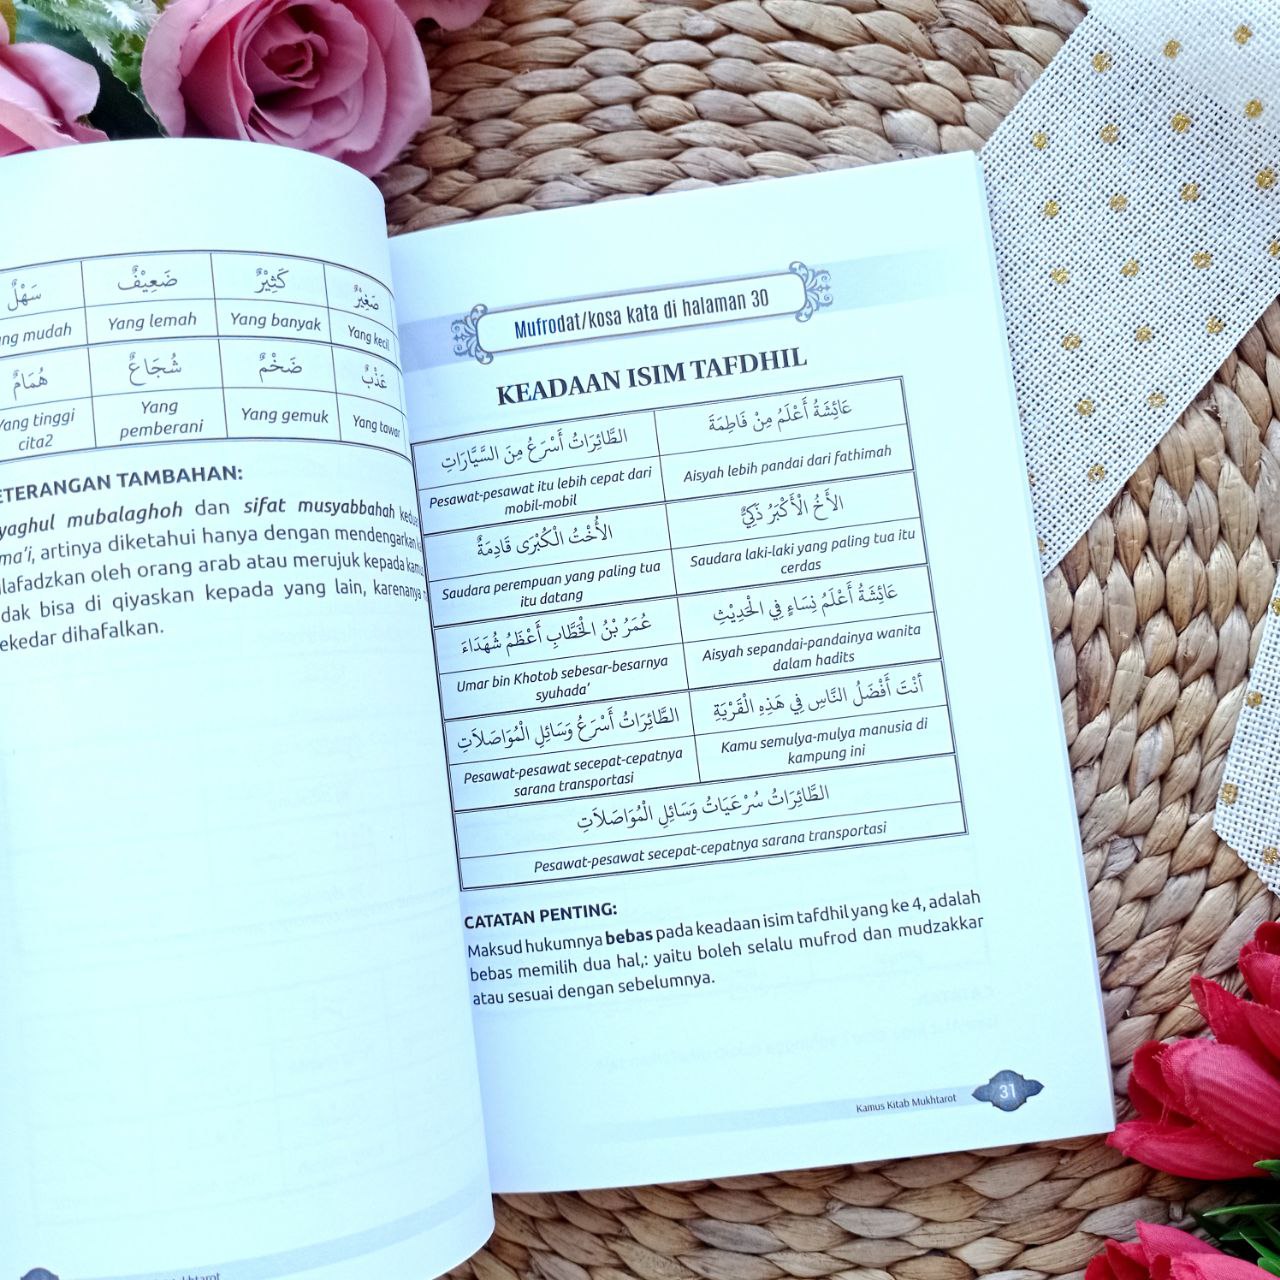 سَهْلٌ ضَعِيْفٌ كَثِيْرٌ صَغِيْرٌ
mudah Yang lemah Yang banyak Yang kecil
هُمَامٌ شُجَاعٌ ضَخْمٌ عَذْبٌ
Yang tinggi
cita2
Yang
pemberani
Yang gemuk
Yang tawar
TAMBAHAN:
mubalaghoh dan sifat musyabbahah
artinya diketahui hanya dengan mendengarkan
oleh orang arab atau merujuk kepada
bisa di qiyaskan kepada yang lain, karenanya
dihafalkan.
Mufrodat/kosa kata di halaman 30
KEADAAN ISIM TAFDHIL
الطَّائِرَاتُ أَسْرَعُ مِنَ السَّيَّارَاتِ
عَائِشَةُ أَعْلَمُ مِنْ فَاطِمَةَ
Pesawat-pesawat itu lebih cepat dari
mobil-mobil
Aisyah lebih pandai dari fathimah
الأُخْتُ الْكُبْرَى قَادِمَةٌ
الأَخُ الْأَكْبَرُ ذَكِيٌّ
Saudara perempuan yang paling tua
itu datang
Saudara laki-laki yang paling tua itu
cerdas
عُمَرُ بْنُ الْخَطَّابِ أَعْظَمُ شُهَدَاءَ
عَائِشَةُ أَعْلَمُ نِسَاءٍ فِي الْحَدِيْثِ
Umar bin Khotob sebesar-besarnya
syuhada'
Aisyah sepandai-pandainya wanita
dalam hadits
الطَّائِرَاتُ أَسْرَعُ وَسَائِلِ الْمُوَاصَلَاتِ
أَنْتَ أَفْضَلُ النَّاسِ فِي هَذِهِ الْقَرْيَةِ
Pesawat-pesawat secepat-cepatnya
sarana transportasi
Kamu semulya-mulya manusia di
kampung ini
الطَّائِرَاتُ سُرْعَيَاتُ وَسَائِلِ الْمُوَاصَلَاتِ
Pesawat-pesawat secepat-cepatnya sarana transportasi
CATATAN PENTING:
Maksud hukumnya bebas pada keadaan isim tafdhil yang ke 4, adalah
bebas memilih dua hal,: yaitu boleh selalu mufrod dan mudzakkar
atau sesuai dengan sebelumnya.
Kamus Kitab Mukhtarot 31